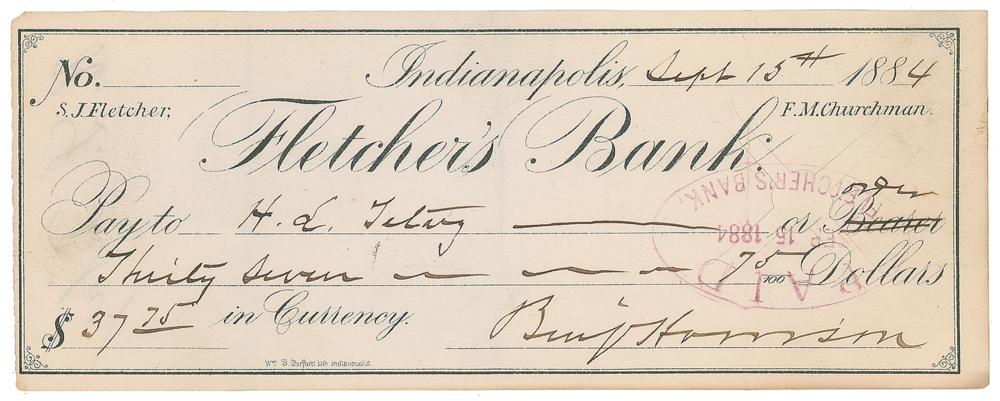 No. Indianapolis, Sept 15th 1884
S. J. Fletcher, F. M. Churchman.
Fletcher's Bank.
Pay to H. L. or Bearer order
Thirty Seven 75/100 Dollars
$ 37 75 in Currency.
Benj Harrison
Wm. B. Burford Lith. Indianapolis.
FLETCHER'S BANK,
15 1884
PAID